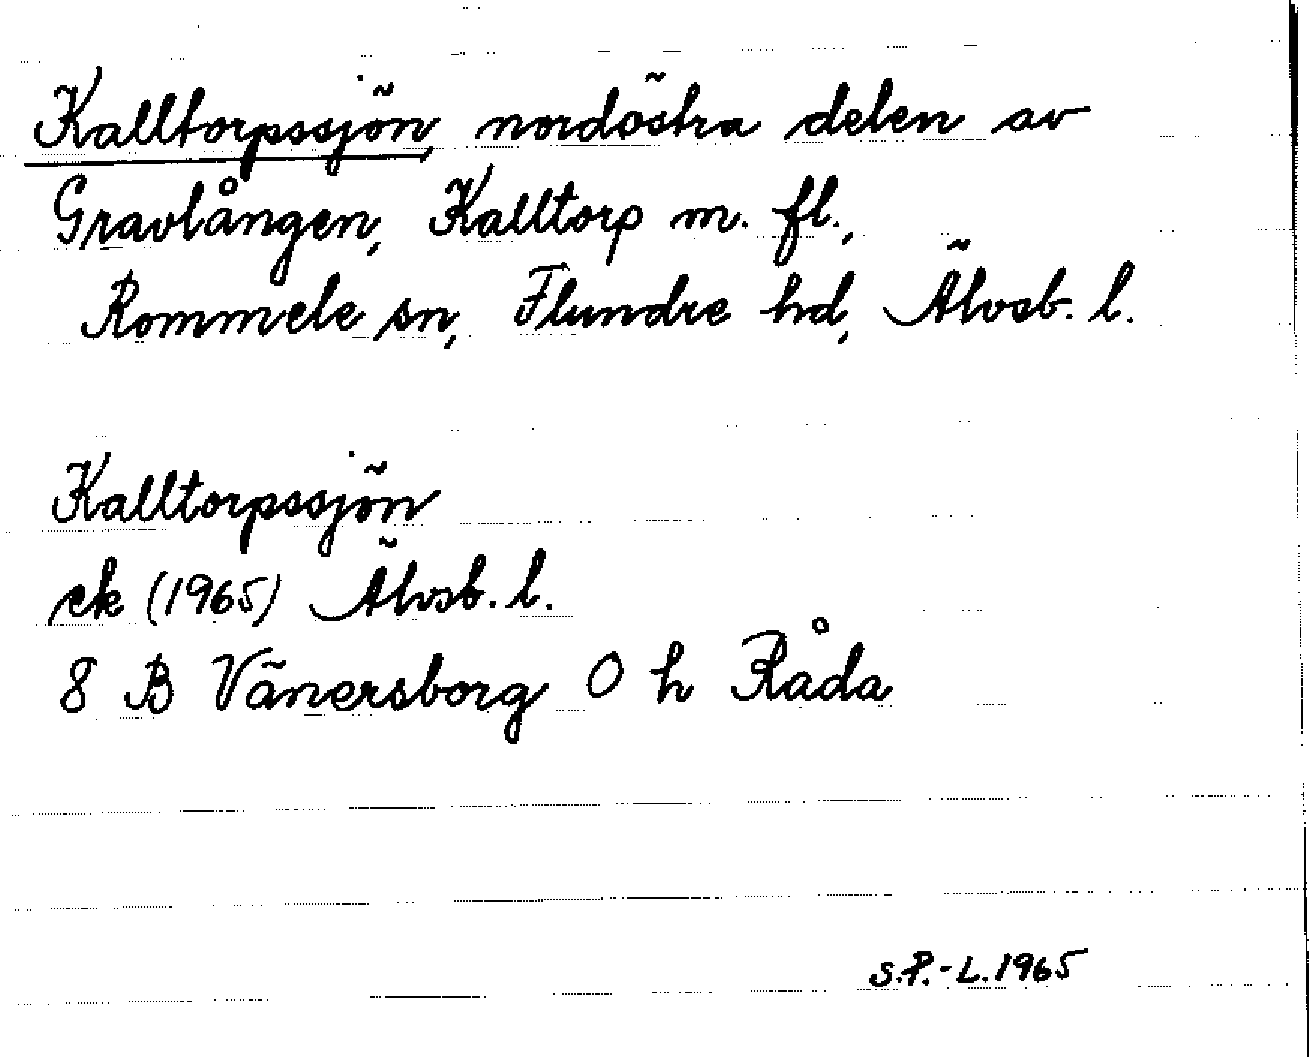 Kalltorpssjön, nordöstra delen av
Gravlången, Kalltorp m. fl.,
Rommele sn, Flundre hd, Älvsb. l.
Kalltorpssjön
ek (1965) Älvsb. l.
8 B Vänersborg 0 h Råda
S.P.-L. 1965